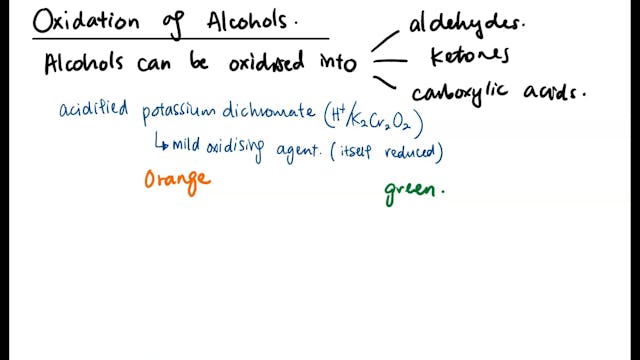 Oxidation of Alcohols.
Alcohols can be oxidised into
aldehydes.
ketones
carboxylic acids.
acidified potassium dichromate (H⁺/K₂Cr₂O₂)
↳ mild oxidising agent. (itself reduced)
Orange
green.